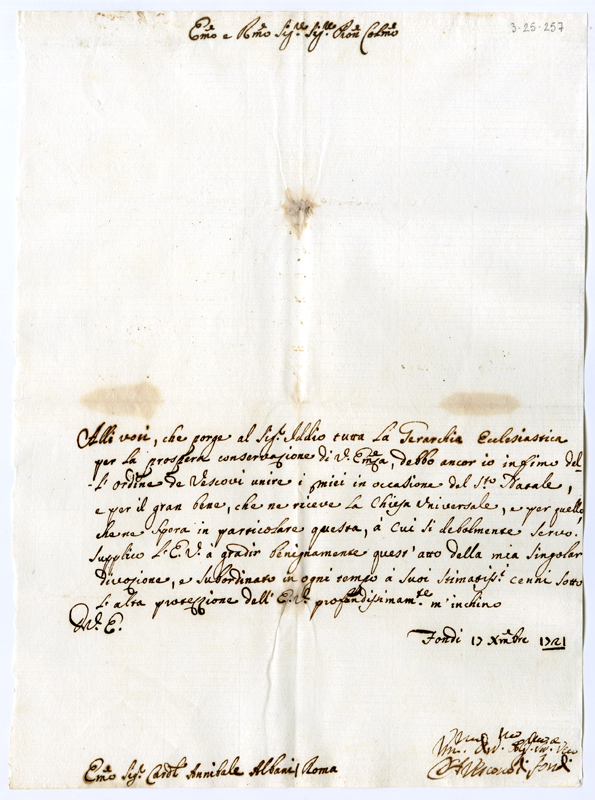 3-25-257
Emo e Rmo Sigre Sigre Pron Colmo
Alli voti, che porge al Sigr Iddio tutta la Ierarchia Ecclesiastica
per la prospera conservazione di V. Emza, debbo ancor io infimo del-
-l'ordine de Vescovi unire i miei in occasione del Sto Natale,
e per il gran bene, che ne riceve la Chiesa Universale, e per quello,
che ne spera in particolare questa, à cui sì debolmente servo.
Supplico l'E. V. à gradir benignamente quest'atto della mia singolar
divozione, e subordinato in ogni tempo à suoi stimatissi cenni sotto
l'alta protezzione dell'E. V. profondissimamte m'inchino
Di V. E.
Fondi 17 Xmbre 1721
Vescovo di Fondi
Emo Sigr Cardl Annibale Albani / Roma